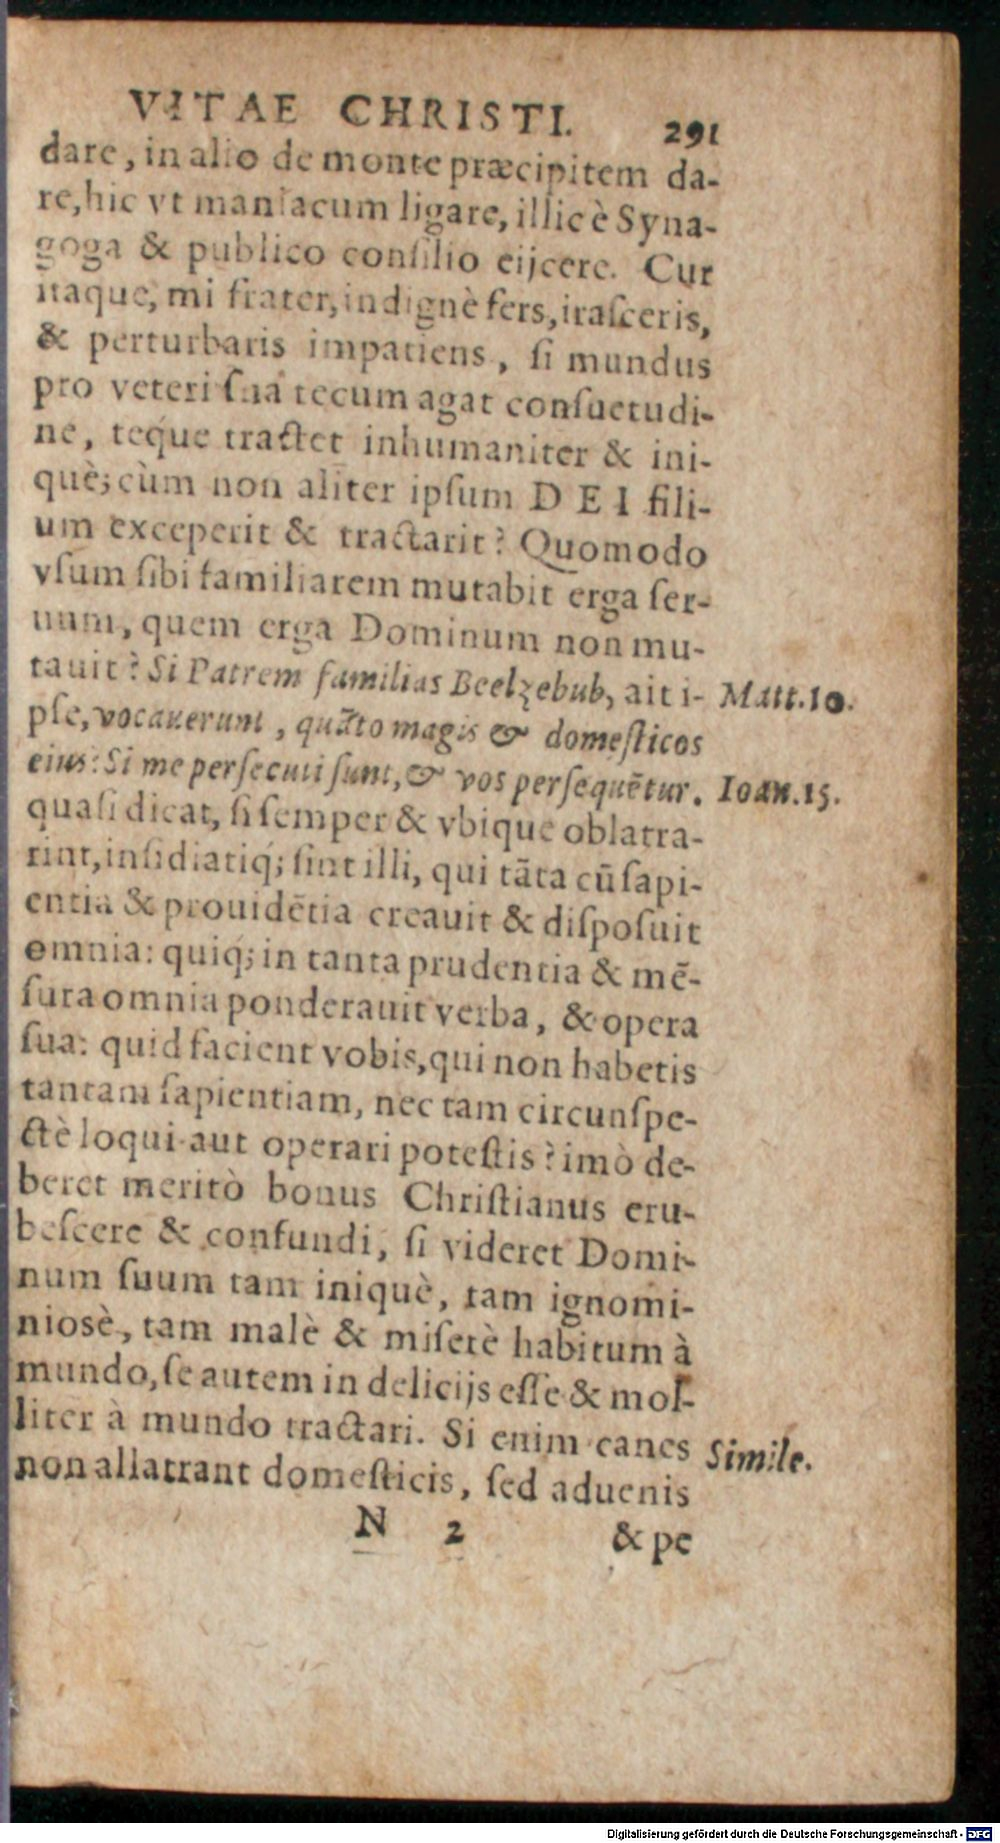 VITAE CHRISTI. 291
dare, in alio de monte præcipitem da-
re, hic vt maniacum ligare, illic è Syna-
goga & publico consilio eijcere. Cur
itaque, mi frater, indignè fers, irasceris,
& perturbaris impatiens, si mundus
pro veteri sua tecum agat consuetudi-
ne, teque tractet inhumaniter & ini-
què; cùm non aliter ipsum DEI fili-
um exceperit & tractarit? Quomodo
vsum sibi familiarem mutabit erga ser-
uum, quem erga Dominum non mu-
tauit? Si Patrem familias Beelzebub, ait i- Matt.10.
pse, vocauerunt, quãto magis & domesticos
eius: Si me persecuti sunt, & vos persequẽtur. Ioan.15.
quasi dicat, si semper & vbique oblatra-
rint, insidiatiq́; sint illi, qui tãta cũ sapi-
entia & prouidẽtia creauit & disposuit
omnia: quiq́; in tanta prudentia & mẽ-
sura omnia ponderauit verba, & opera
sua: quid facient vobis, qui non habetis
tantam sapientiam, nec tam circunspe-
ctè loqui aut operari potestis? imò de-
beret meritò bonus Christianus eru-
bescere & confundi, si videret Domi-
num suum tam iniquè, tam ignomi-
niosè, tam malè & miserè habitum à
mundo, se autem in delicijs esse & mol-
liter à mundo tractari. Si enim canes Simile.
non allatrant domesticis, sed aduenis
N 2 & pe
Digitalisierung gefördert durch die Deutsche Forschungsgemeinschaft - DFG